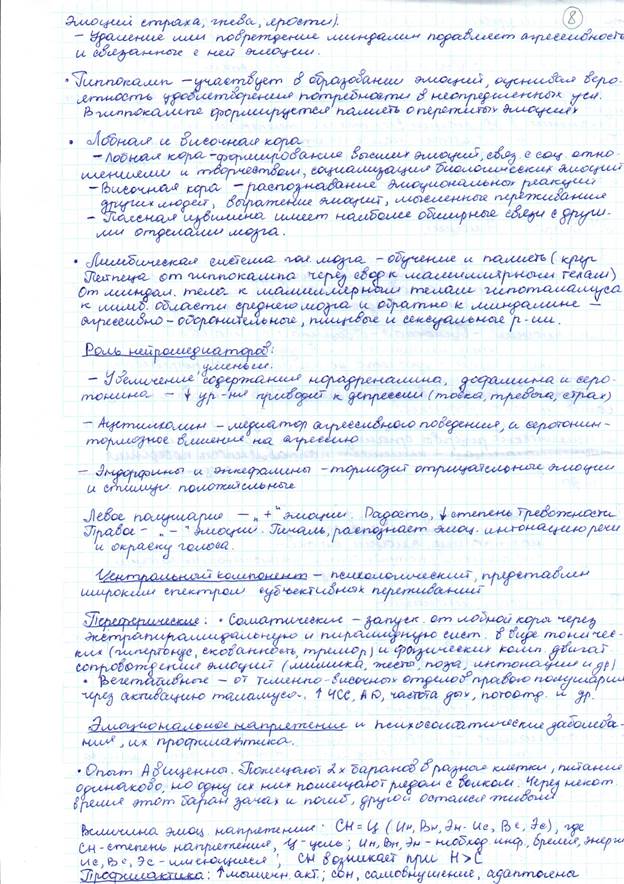 8
эмоций страха, гнева, ярости).
– Удаление или повреждение миндалин подавляет агрессивность
и связанные с ней эмоции.
• Гиппокамп – участвует в образовании эмоций, оценивая веро-
ятность удовлетворения потребности в неопределенных усл.
В гиппокампе формируется память о пережитых эмоциях
• Лобная и височная кора
– Лобная кора – формирование высших эмоций, связ. с соц. отно-
шениями и творчеством, социализация биологических эмоций
– Височная кора – распознавание эмоциональных реакций
других людей, выражение эмоций, мысленные переживания
– Поясная извилина имеет наиболее обширные связи с други-
ми отделами мозга.
• Лимбическая система гол. мозга – обучение и память (круг
Пейпеца от гиппокампа через свод к мамиллярным телам)
От миндал. тела к мамиллярным телам гипоталамуса
к лимб. области среднего мозга и обратно к миндалине –
агрессивно-оборонительные, пищевые и сексуальные р-ии.
Роль нейромедиаторов:
уменьш.
– Увеличение содержания норадреналина, дофамина и серо-
тонина – ↓ ур-ня приводит к депрессии (тоска, тревога, страх)
– Ацетилхолин – медиатор агрессивного поведения, а серотонин –
тормозное влияние на агрессию
– Эндорфины и энкефалины – тормозят отрицательные эмоции
и стимул. положительные
Левое полушарие – „+“ эмоции. Радость, ↓ степень тревожности
Правое – „–“ эмоции. Печаль, распознает эмоц. интонацию речи
и окраску голоса.
Центральный компонент – психологический, представлен
широким спектром субъективных переживаний
Переферические: • Соматические – запуск. от лобной коры через
экстрапирамидальную и пирамидную сист. в виде тоничес-
ких (гипертонус, скованность, тремор) и физических комп. двигат
сопровождения эмоций (мимика, жесты, поза, интонации и др)
• Вегетативные – от теменно-височных отделов правого полушария
через активацию таламуса. ↑ ЧСС, АД, частота дых, потоотд. и др.
Эмоциональное напряжение и психосоматические заболева-
ния, их профилактика.
• Опыт Авиценны. Помещают 2х баранов в разные клетки, питание
одинаково, но одну из них помещают рядом с волком. Через некот.
время этот баран зачах и погиб, другой остался живым
Величина эмоц. напряжения: СН = Ц (Ин, Вн, Эн – Ис, Вс, Эс), где
СН – степень напряжения, Ц – цель; Ин, Вн, Эн – необход. инф, время, энерг
Ис, Вс, Эс – имеющиеся; СН возникает при Н > С
Профилактика: ↑ мышечн. акт; сон, самовнушение, адаптогена